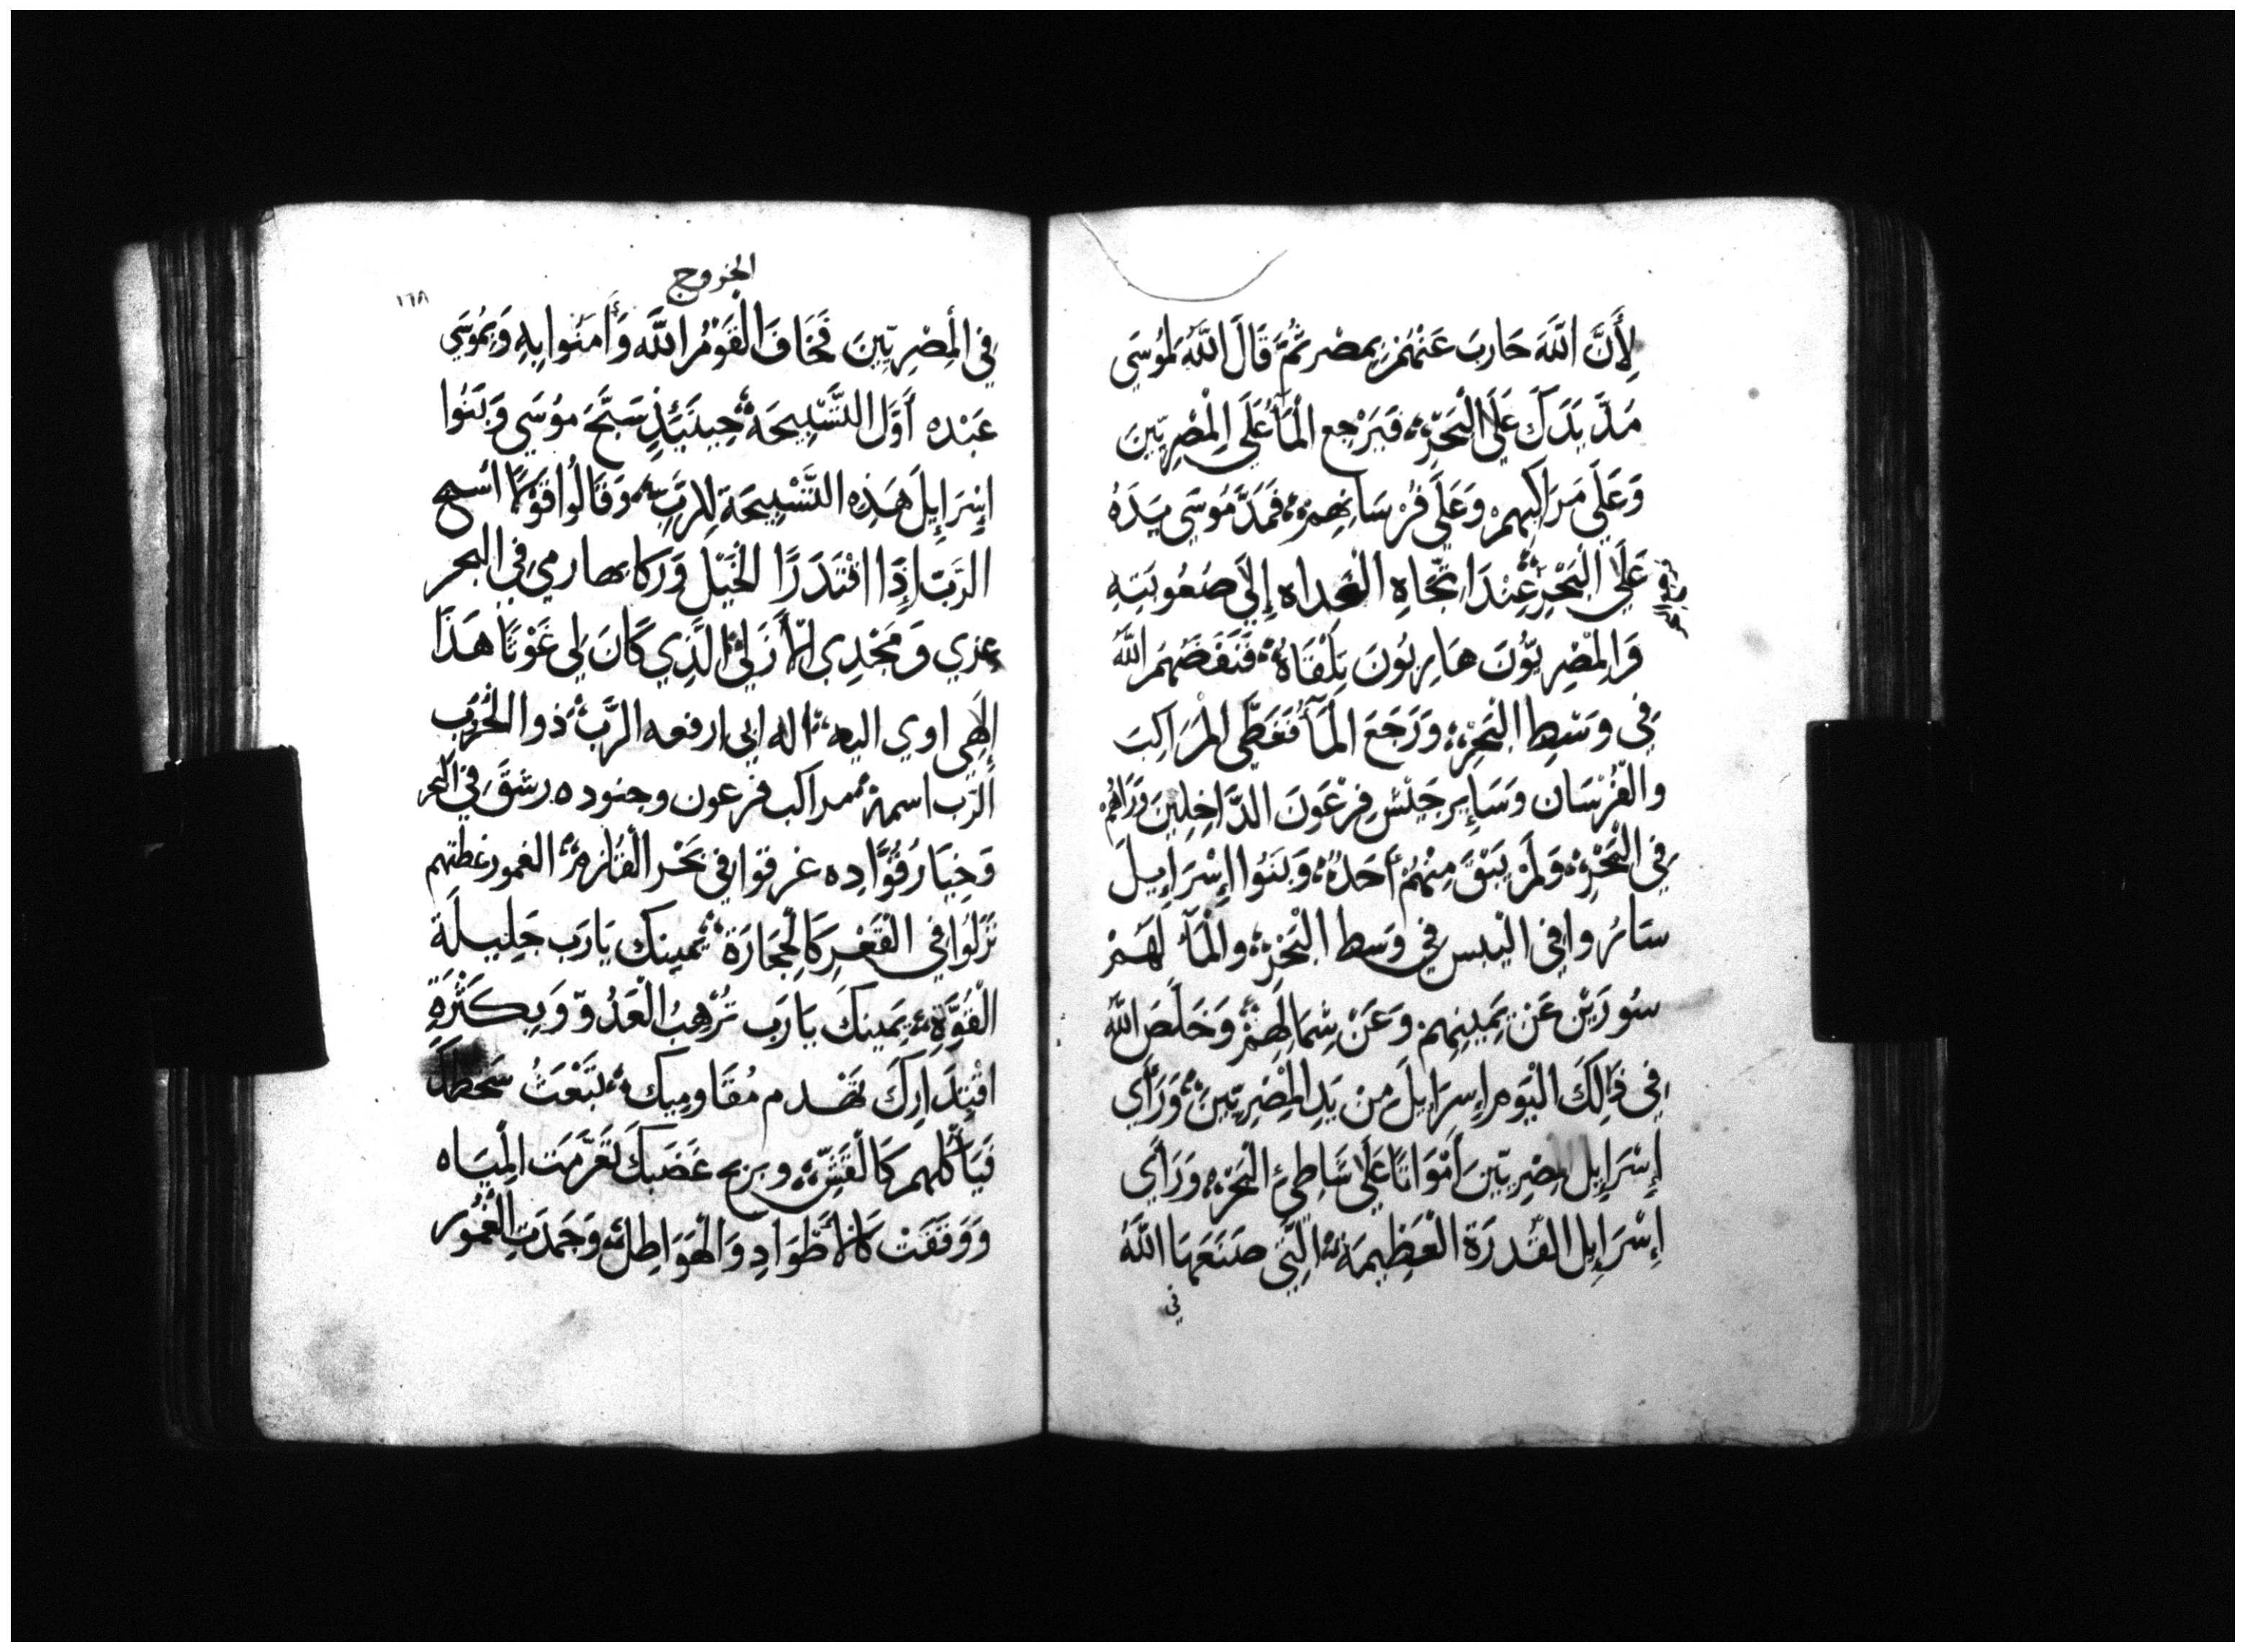 لِأَنَّ اللَّهَ حَارَبَ عَنْهُمْ بِمِصْر ثُمَّ قَالَ اللَّهُ لِمُوسَى
مَدَّ يَدَكَ عَلَى الْبَحْرِ فَيَرْجِع الْمَأُ عَلَى الْمِصْرِيِّينَ
وَعَلَى مَرَاكِبِهِمْ وَعَلَى فُرْسَانِهِمْ فَمَدَّ مُوسَى يَدَهُ
عَلَى الْبَحْرِ عِنْدَ اتِّجَاهِ الْغداه إِلَى صُعُوبَتِهِ
وَالْمِصْرِيُّونَ هَارِبُونَ تِلْقَاهُ فَنَفَضَهُمَ اللَّهُ
فِي وَسْطِ الْبَحْرِ وَرَجَعَ الْمَآُ فَغَطَّى الْمَرَاكِبَ
والْفُرْسَان وَسَايِر جَيْش فِرْعَوْنَ الدَّاخِلِينَ وَرَاهُمْ
فِي الْبَحْرِ وَلَمْ يَبْقَ مِنْهُمْ أَحَدٌ وَبَنُوا إِسْرَايِيلَ
سَارُوا فِي الْيبس فِي وَسط الْبَحْرِ وَالْمَآُ لَهُمْ
سُورَيْن عَنْ يَمِينِهِم وَعَنْ شِمَالِهِمْ وَخَلَّصَ اللَّهُ
فِي ذَالِكَ الْيَوْمِ إِسْرَايِلَ مِنْ يَدِ الْمِصْرِيِّينَ وَرَأَي
إِسْرَايِل الْمِصْرِيِّينَ أَمْوَاتًا عَلَى شَاطِئِ الْبَحْرِ وَرَأَي
إِسْرَايِل الْقُدرَة الْعَظِيمَة الَّتِي صَنَعَهَا اللَّهُ
في
الخروج
١٦٨
فِي الْمِصْرِيِّينَ فَخَافَ الْقَوْمُ اللَّه وَأَامَنُوا بِهِ وَبِمُوسَي
عَبْده أَوَّل التَّسْبِيحَة حِينَيِذٍ سَبَّحَ مُوسَي وَبَنُوا
إِسْرَايِلَ هَذِه التَّسْبِيحَة لِلرَّبِّ وَقَالُوا قَوْلًا اسبح
الرَّبّ إِذَا اقْتَدَرًا الْخَيْل وَركابها رمي في البحر
عزي وَمَجْدِي الْأَزَلِي الَّذِي كَانَ لِي عَوْنًا هَذَا
إِلَهِي اله ابي ارفعه الرَّبّ ذوا الْحُرُب
الرّب اسمه مراكب فرعون وجنوده رشَقَ في البحر
وَخِيَار قُوَّادِه غرقوا فِي بَحْر الْقلزم الغمور غطتهم
نَزَلُوا فِي الْقَعْرِ كَالْحِجَارَة يمينك يَارَب جَلِيلَة
الْقُوَّةِ يَمِينكَ يَارَب تُرْهِبُ الْعَدُوّ وَبِكَثْرَةِ
اقْتِدَارِكَ تَهدم مُقَاوِمِيك تَبْعَثُ سَخَطك
فَيَأْكُلهم كَالْقَشِّ وبريح غَضَبكَ تَعَرَّمَت الْمِيَاه
وَوَقَفَتْ كَالْأَطْوَادِ وَالْهَوَاطِل وَجَمَدَتِ الْغُمُور